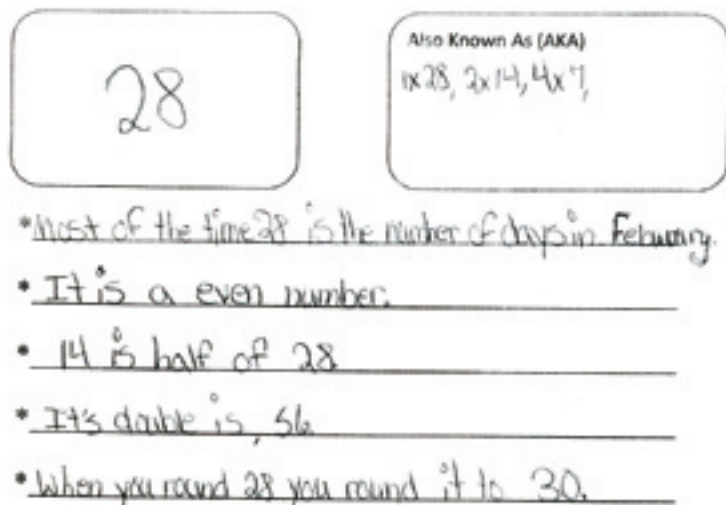 28
Also Known As (AKA)
1x28, 2x14, 4x7,
* Most of the time 28 is the number of days in Febuary.
* It is a even number.
* 14 is half of 28
* It's double is, 56
* When you round 28 you round it to 30.